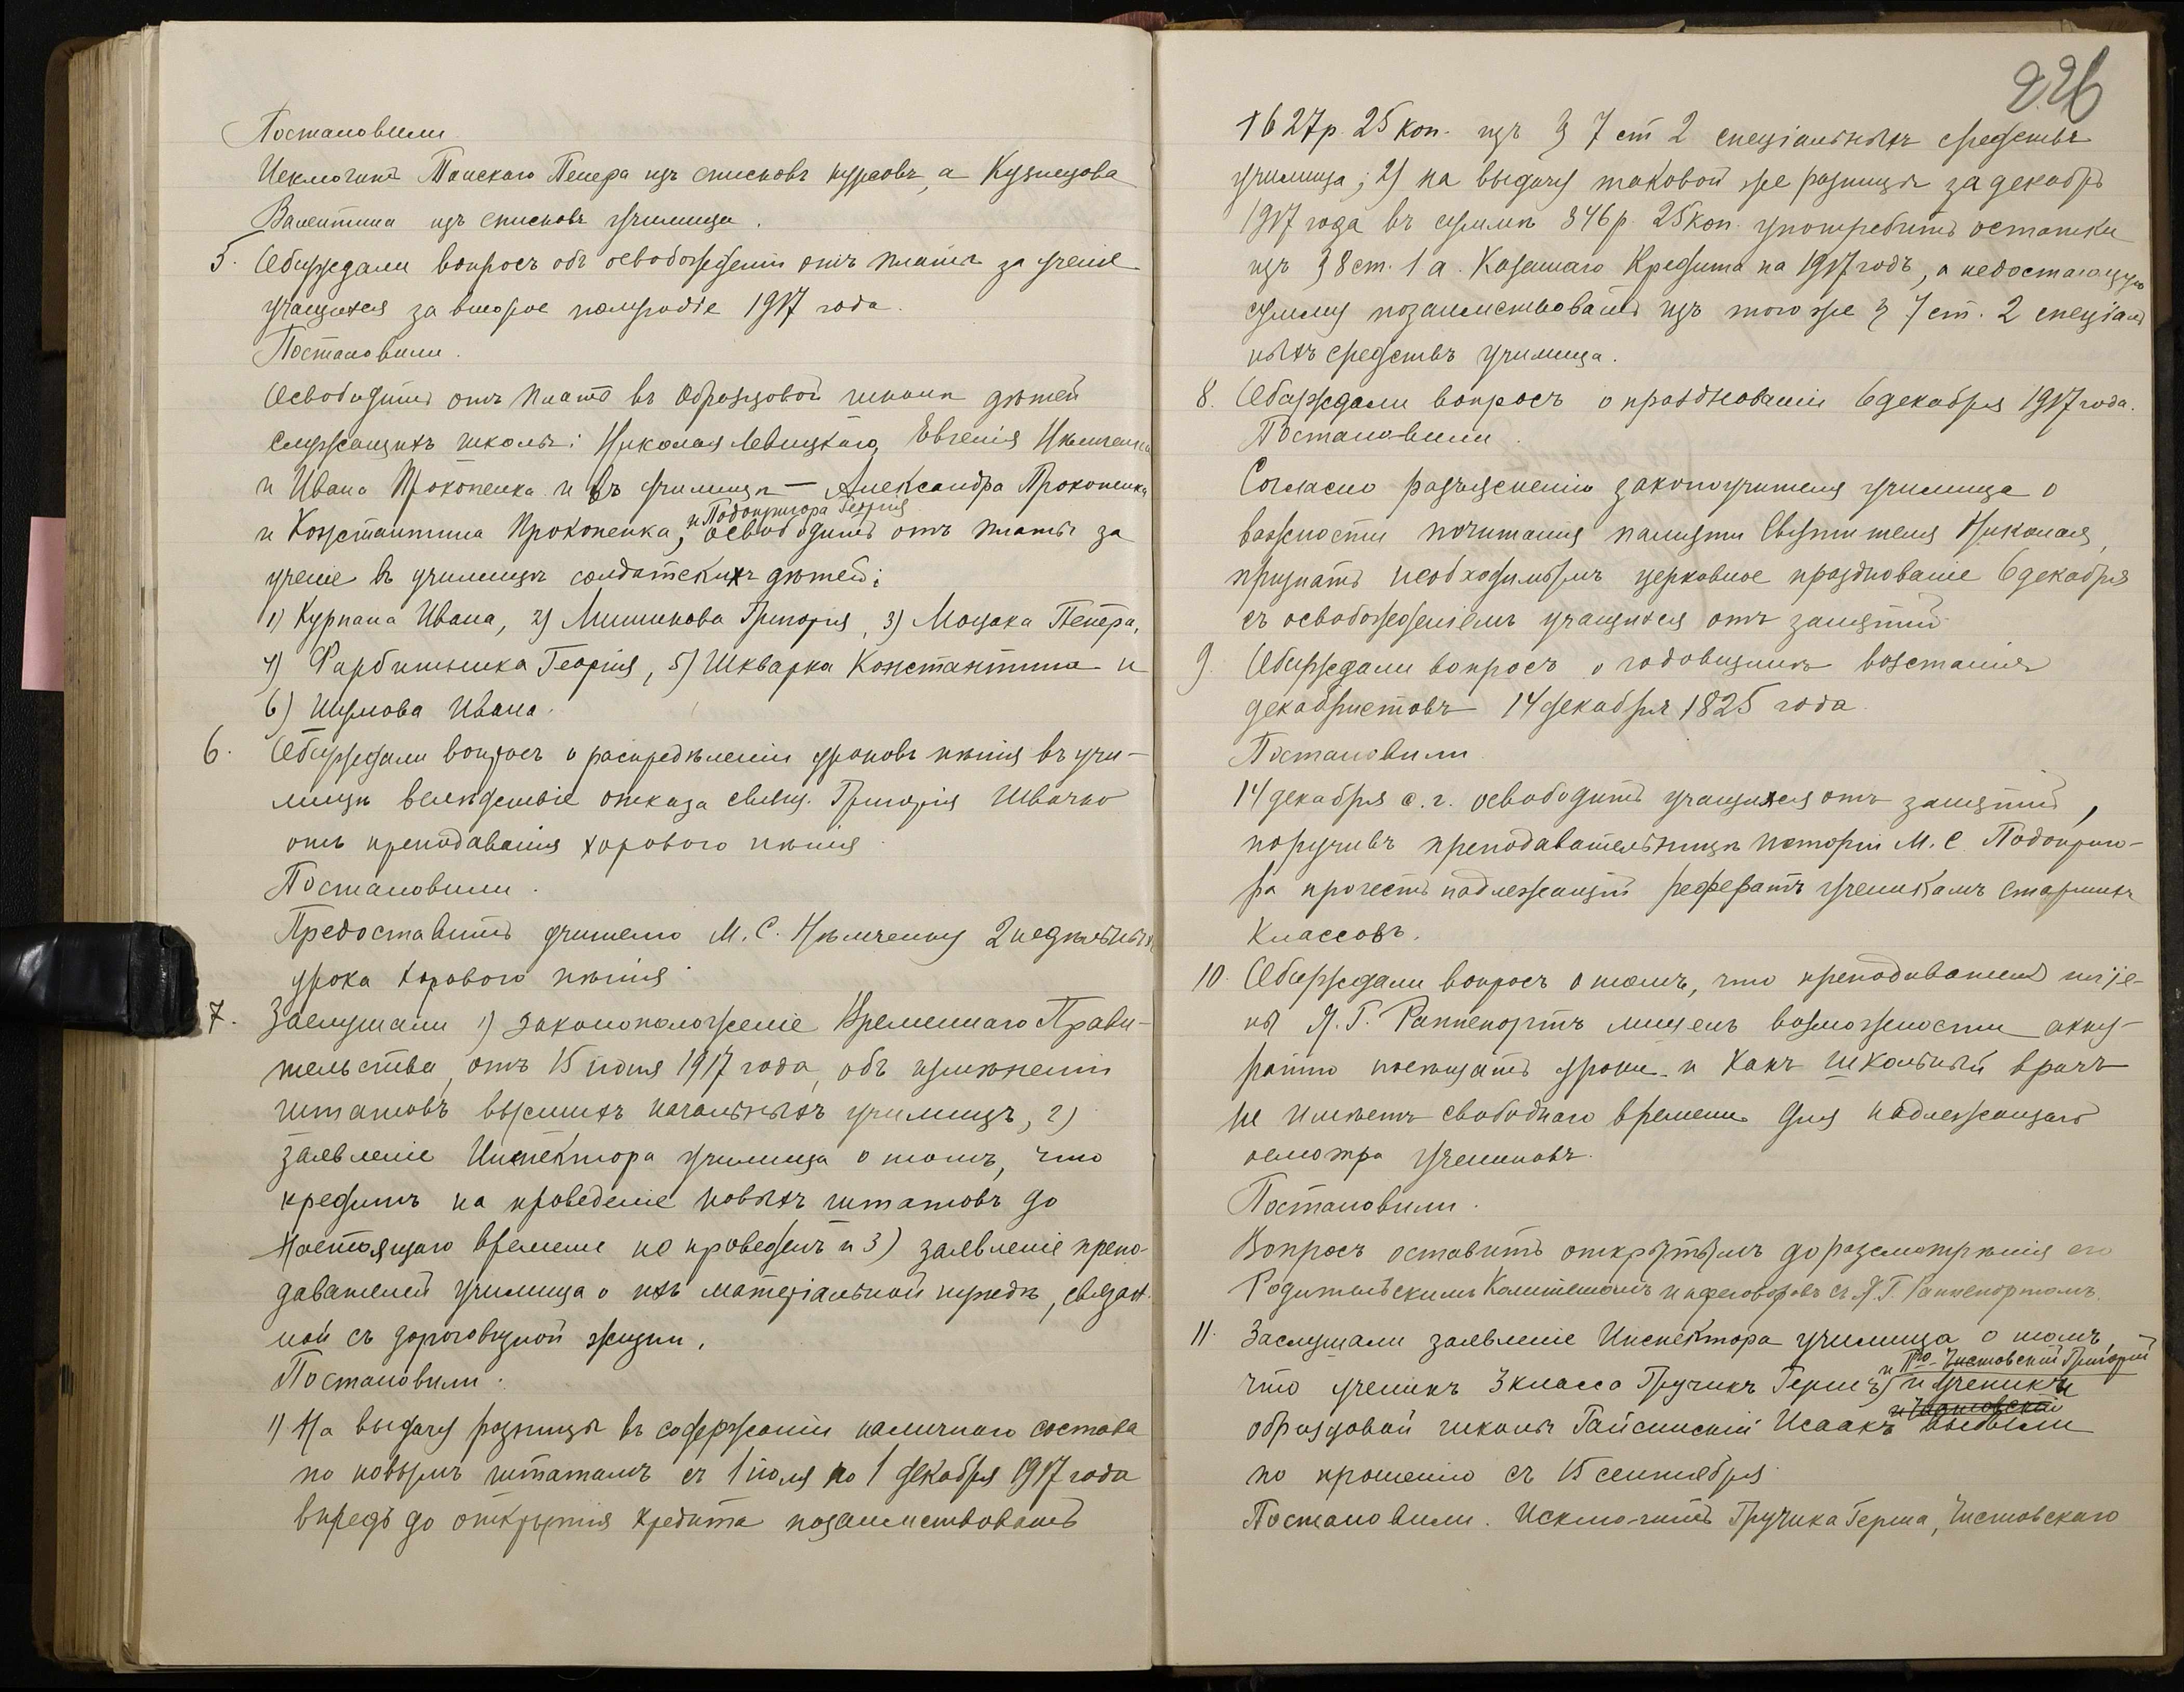 Постановили
Исключить Петра изъ списковъ курсовъ, а Кузнецова
Валентина изъ списковъ училища.
5. Обсуждали вопросъ объ освобожденіи отъ платы за ученіе
учащихся за второе полугодіе 1917 года.
Постановили.
Освободить отъ платы въ образцовой школѣ дѣтей
служащихъ школы: Николая Левицкаго, Евгенія
и Ивана Прокопенка и въ училищѣ – Александра Прокопенка
и Подопригора Георгія
и Константина Прокопенка, освободить отъ платы за
ученіе въ училищѣ солдатскихъ дѣтей:
1) Курпана Ивана, 2) Мишинова Григорія, 3) Моцака Петра,
4) Фарбитника Георгія, 5) Шкварка Константина и
6) Шумова Ивана.
6. Обсуждали вопросъ о распредѣленіи уроковъ пѣнія въ учи-
лищѣ вслѣдствіе отказа свящ. Григорія Швачко
отъ преподаванія хорового пѣнія.
Постановили.
Предоставить учителю М. С. Нѣмченку 2 недѣльныхъ
урока хорового пѣнія.
7. Заслушали 1) законоположеніе Временнаго Прави-
тельства, отъ 15 іюня 1917 года, объ измѣненіи
штатовъ высшихъ начальныхъ училищъ, 2)
заявленіе Инспектора училища о томъ, что
кредитъ на проведеніе новыхъ штатовъ до
настоящаго времени не проведенъ и 3) заявленіе препо-
давателей училища о ихъ матеріальной нуждѣ, связан-
ной съ дороговизной жизни.
Постановили.
1) На выдачу разницы въ содержаніи наличнаго состава
по новымъ штатамъ съ 1 іюля по 1 декабря 1917 года
впредь до открытія кредита позаимствовать
226
1627 р. 25 коп. изъ § 7 ст 2 спеціальныхъ средствъ
училища; 2) на выдачу таковой же разницы за декабрь
1917 года въ суммѣ 346 р. 25 коп. употребить остатки
изъ § 8 ст. 1 а. Казеннаго Кредита на 1917 годъ, а недостающую
сумму позаимствовать изъ того же § 7 ст. 2 спеціаль
ныхъ средствъ училища.
8. Обсуждали вопросъ о празднованіи 6 декабря 1917 года.
Постановили.
Согласно разъясненію законоучителя училища о
важности почитанія памяти Святителя Николая,
признать необходимымъ церковное празднованіе 6 декабря
съ освобожденіемъ учащихся отъ занятій
9. Обсуждали вопросъ о годовщинѣ возстанія
декабристовъ 14 декабря 1825 года.
Постановили
14 декабря с. г. освободить учащихся отъ занятій,
поручивъ преподавательницѣ исторіи М. С. Подоприго-
ра прочесть надлежащій рефератъ ученикамъ старшихъ
классовъ.
10. Обсуждали вопросъ о томъ, что преподаватель гигіе-
ны Я. Г. Раппепортъ лишенъ возможности акку-
ратно посѣщать уроки и какъ школьный врачъ
не имѣетъ свободнаго времени для надлежащаго
осмотра учениковъ.
Постановили.
Вопросъ оставить открытымъ до разсмотрѣнія его
Родительскимъ Комитетомъ и переговоровъ съ Я. Г. Раппепортомъ.
11. Заслушали заявленіе Инспектора училища о томъ,
Чистовскій Григорій
что ученикъ 3 класса Гручикъ Герш и ученикъ
образцовой школы Гайсинскій Исаакъ выбыли
по прошенію съ 15 сентября.
Постановили. Исключить Гручика Герша, Чистовскаго